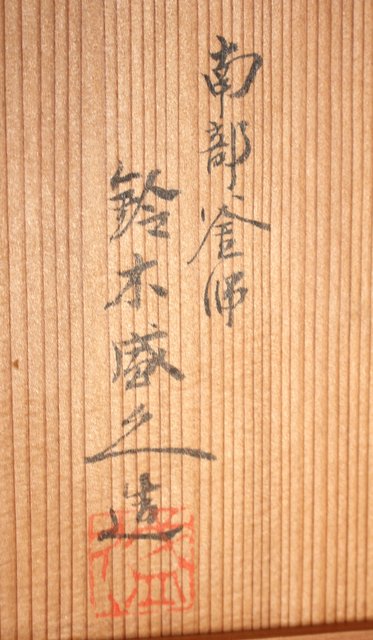 南部釜師
鈴木盛之造